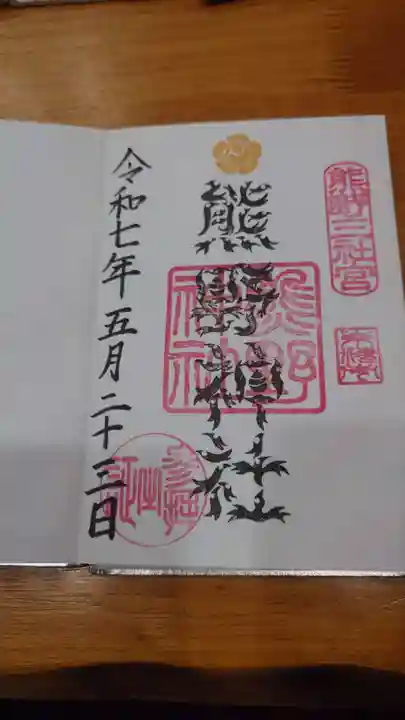 熊野三社宮
熊野神社
熊野
神社
令和七年五月二十三日
参拝
之
証